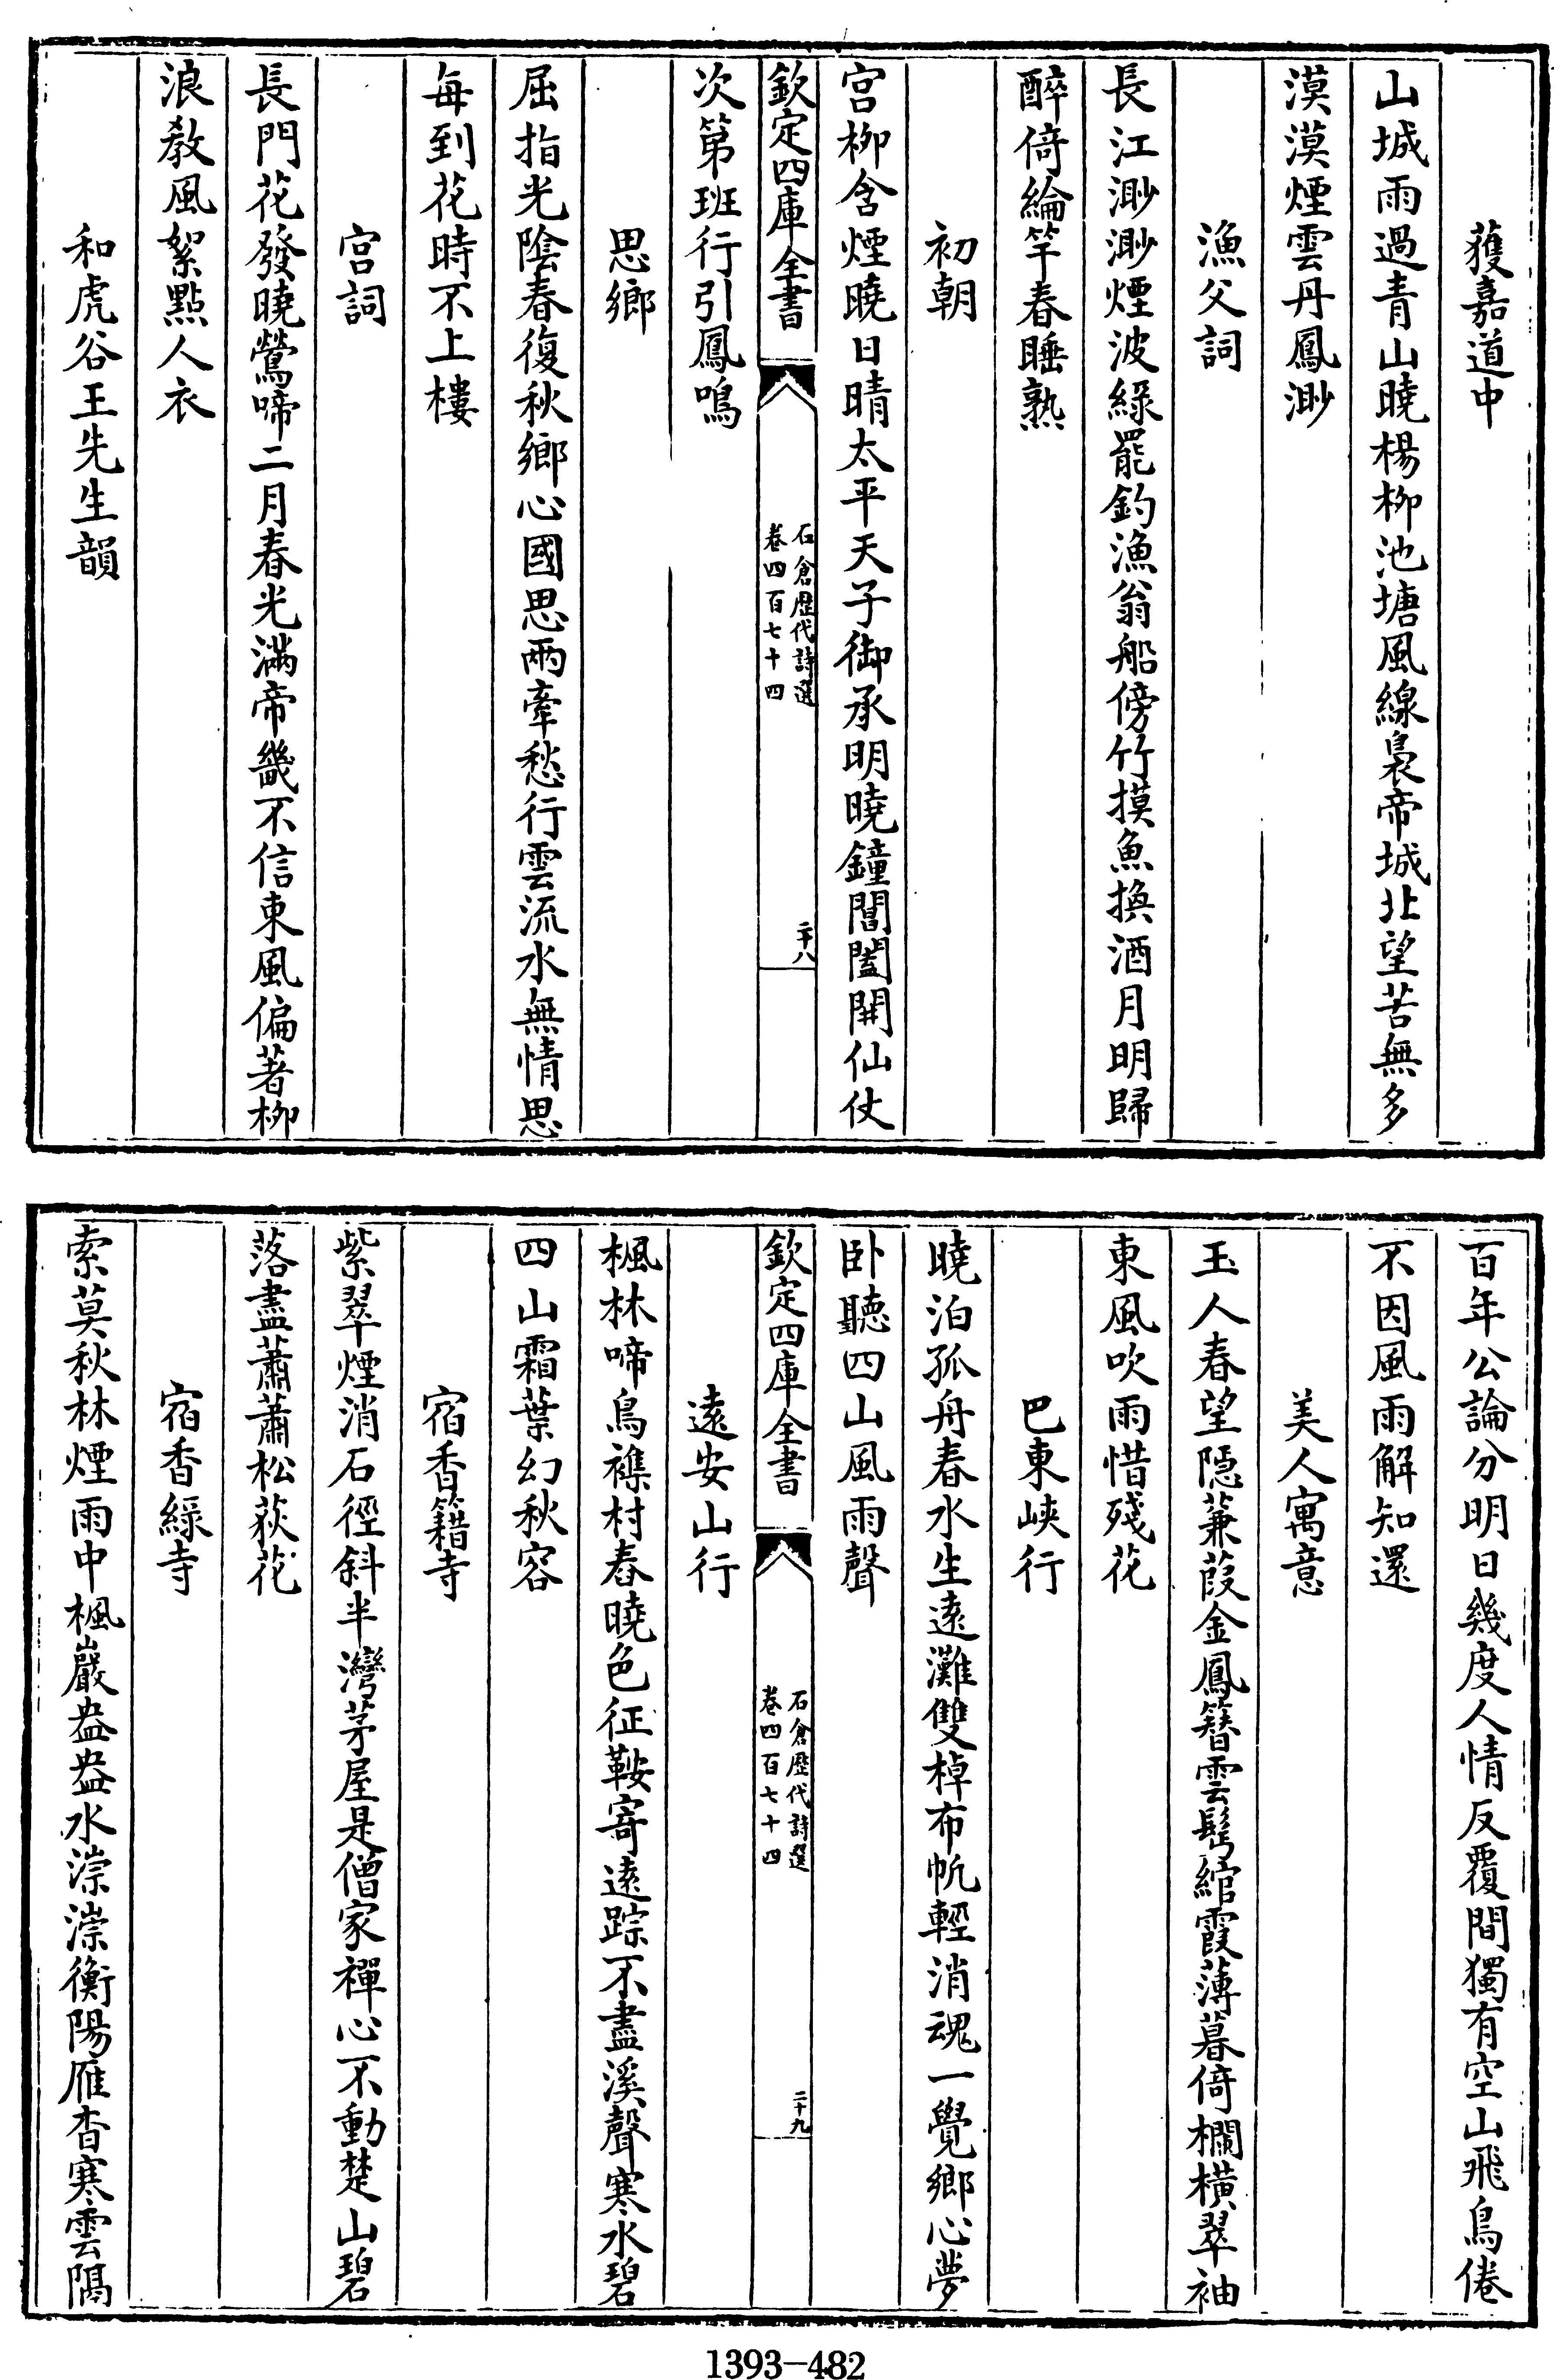 獲嘉道中
山城雨過青山曉楊柳池塘風線裊帝城北望苦無多
漠漠煙雲丹鳳渺
漁父詞
長江渺渺煙波綠罷釣漁翁船傍竹摸魚換酒月明歸
醉倚綸竿春睡熟
初朝
宮柳含煙曉日晴太平天子御承明曉鐘閶闔開仙仗
欽定四庫全書
石倉歷代詩選
卷四百七十四
二十八
次第班行引鳳鳴
思鄉
屈指光陰春復秋鄉心國思兩牽愁行雲流水無情思
每到花時不上樓
宮詞
長門花發曉鶯啼二月春光滿帝畿不信東風偏著柳
浪教風絮點人衣
和虎谷王先生韻
百年公論分明日幾度人情反覆間獨有空山飛鳥倦
不因風雨解知還
美人寓意
玉人春望隱蒹葭金鳳簪雲髩綰霞薄暮倚欄橫翠袖
東風吹雨惜殘花
巴東峽行
曉泊孤舟春水生遠灘雙棹布帆輕消魂一覺鄉心夢
臥聽四山風雨聲
欽定四庫全書
石倉歷代詩選
卷四百七十四
二十九
遠安山行
楓林啼鳥襍村舂曉色征鞍寄遠踪不盡溪聲寒水碧
四山霜葉幻秋容
宿香籍寺
紫翠煙消石徑斜半灣茅屋是僧家禪心不動楚山碧
落盡蕭蕭松荻花
宿香綠寺
索莫秋林煙雨中楓巖盎盎水淙淙衡陽雁杳寒雲隔
1393-482